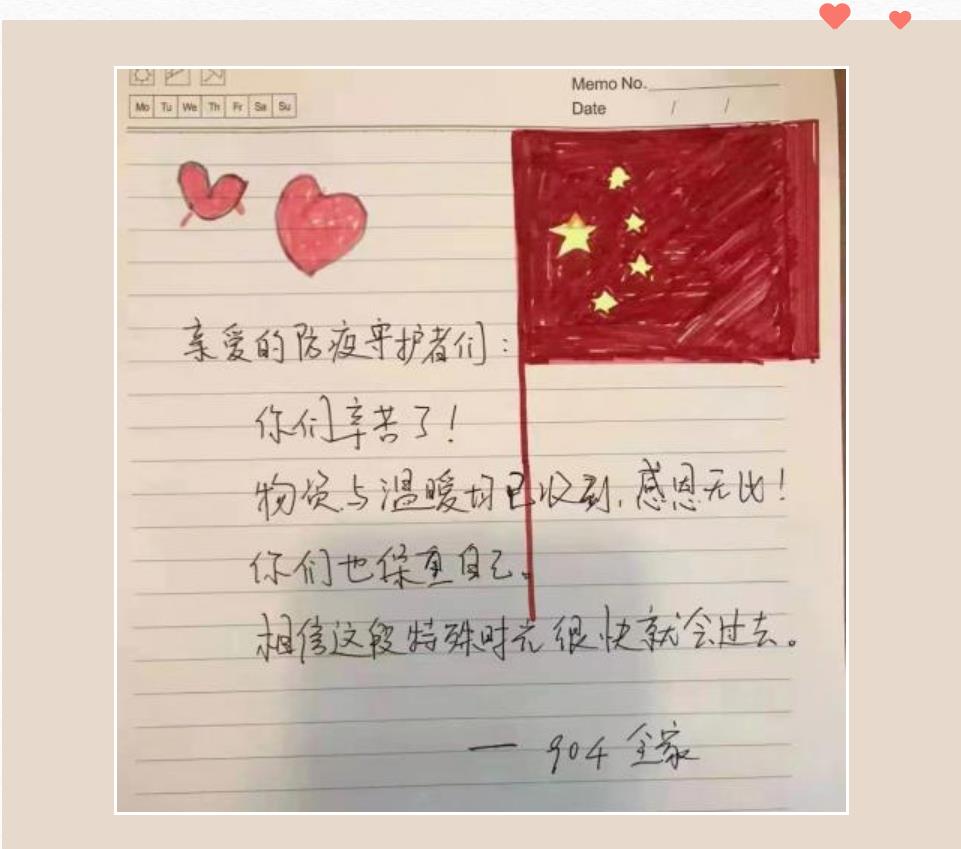 Memo No.
Mo Tu We Th Fr Sa Su
Date / /
亲爱的防疫守护者们：
你们辛苦了！
物资与温暖均已收到，感恩无比！
你们也保重自己。
相信这段特殊时光很快就会过去。
— 904 全家